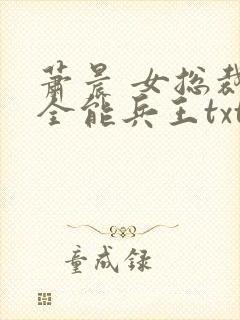 萧晨 女总裁
全能兵王txt
童成录